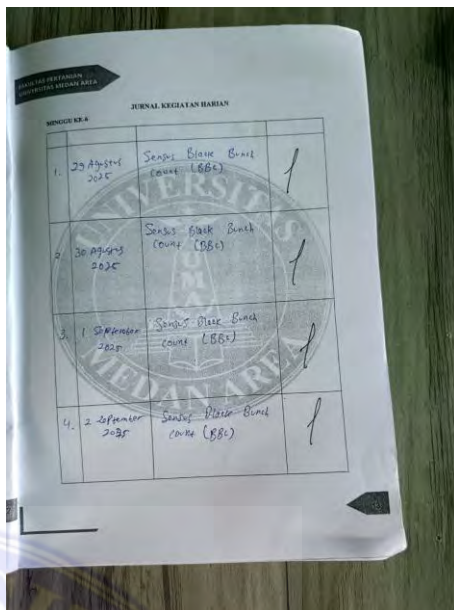 FAKULTAS PERTANIAN
UNIVERSITAS MEDAN AREA
JURNAL KEGIATAN HARIAN
MINGGU KE-6
1. 29 Agustus 2025
Sensus Black Bunch
Count (BBC)
2. 30 Agustus
2025
Sensus Black Bunch
Count (BBC)
3. 1 September
2025
Sensus Black Bunch
Count (BBC)
4. 2 September
2025
Sensus Black Bunch
Count (BBC)
UNIVERSITAS
UMA
MEDAN AREA